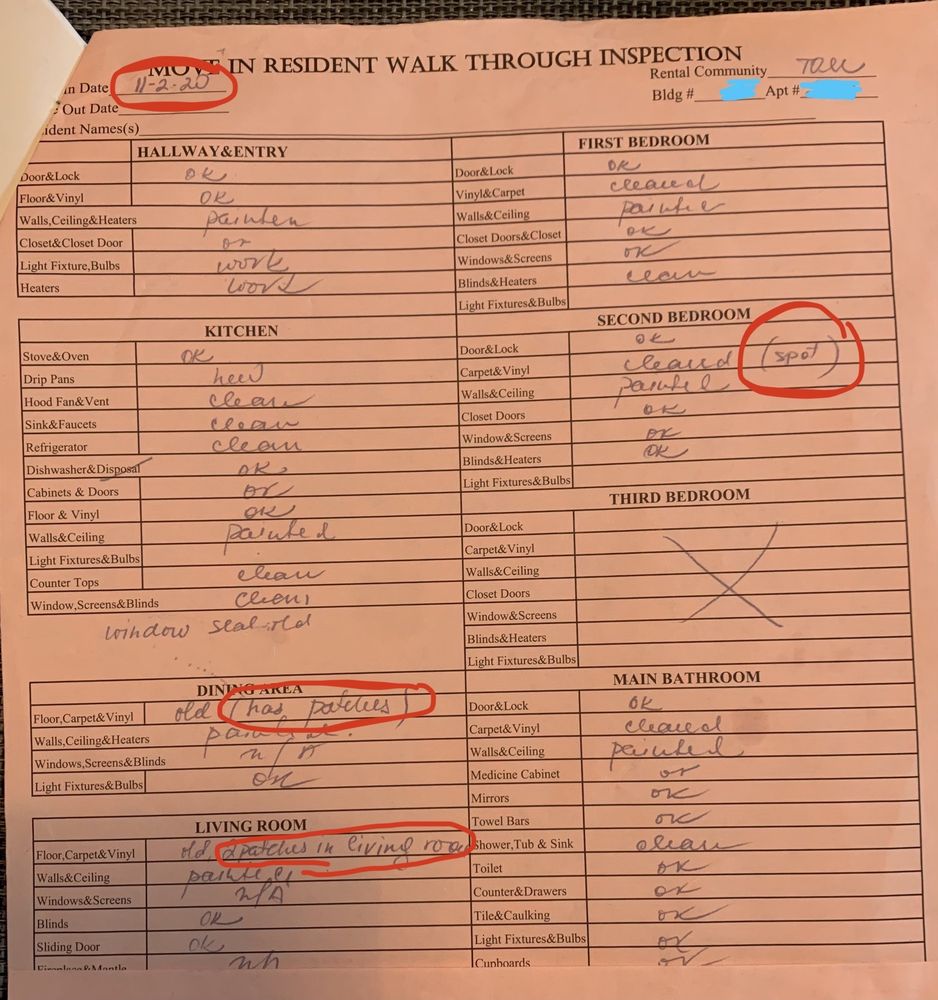 MOVE IN RESIDENT WALK THROUGH INSPECTION
in Date 11-2-20
Rental Community
Out Date
Bldg # Apt #
ident Names(s)
HALLWAY&ENTRY
Door&Lock OK
Floor&Vinyl OK
Walls,Ceiling&Heaters painted
Closet&Closet Door OK
Light Fixture,Bulbs work
Heaters work
KITCHEN
Stove&Oven OK
Drip Pans new
Hood Fan&Vent clean
Sink&Faucets clean
Refrigerator clean
Dishwasher&Disposal OK
Cabinets & Doors OK
Floor & Vinyl OK
Walls&Ceiling painted
Light Fixtures&Bulbs
Counter Tops clean
Window,Screens&Blinds clean
window seal old
DINING AREA
Floor,Carpet&Vinyl old (has patches)
Walls,Ceiling&Heaters painted
Windows,Screens&Blinds n/A
Light Fixtures&Bulbs OK
LIVING ROOM
Floor,Carpet&Vinyl old 2patches in living room
Walls&Ceiling painted
Windows&Screens n/A
Blinds OK
Sliding Door OK
Fireplace&Mantle
FIRST BEDROOM
Door&Lock OK
Vinyl&Carpet cleaned
Walls&Ceiling painted
Closet Doors&Closet OK
Windows&Screens OK
Blinds&Heaters clean
Light Fixtures&Bulbs
SECOND BEDROOM
Door&Lock OK
Carpet&Vinyl cleaned (spot)
Walls&Ceiling painted
Closet Doors OK
Window&Screens OK
Blinds&Heaters OK
Light Fixtures&Bulbs
THIRD BEDROOM
Door&Lock
Carpet&Vinyl
Walls&Ceiling
Closet Doors
Window&Screens
Blinds&Heaters
Light Fixtures&Bulbs
MAIN BATHROOM
Door&Lock OK
Carpet&Vinyl cleaned
Walls&Ceiling painted
Medicine Cabinet OK
Mirrors OK
Towel Bars OK
Shower,Tub & Sink clean
Toilet OK
Counter&Drawers OK
Tile&Caulking OK
Light Fixtures&Bulbs OK
Cupboards OK